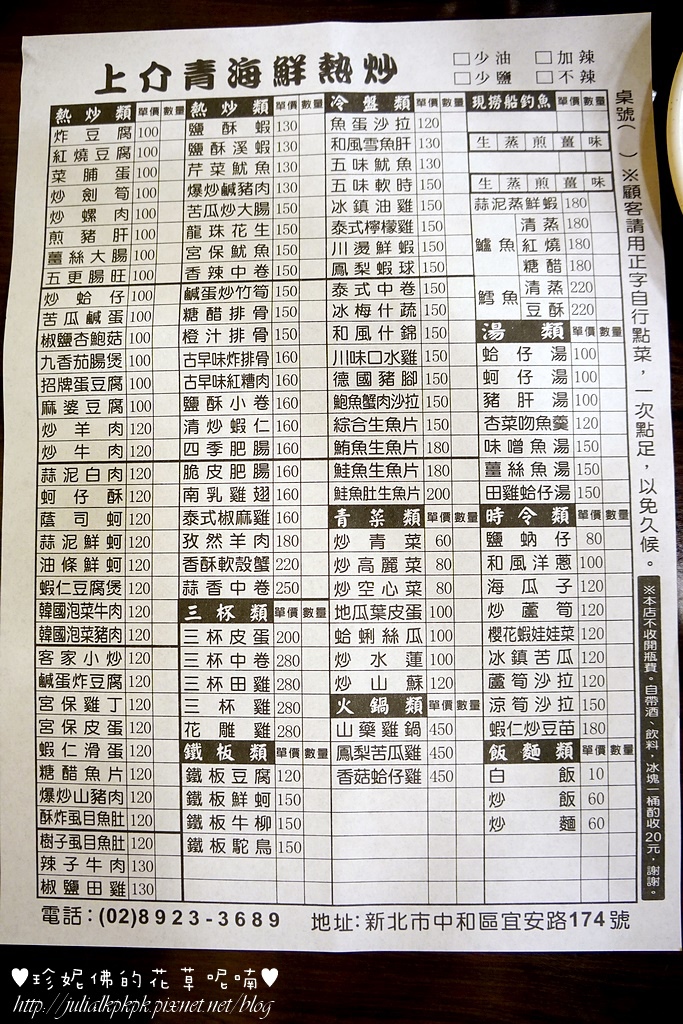 上介青海鮮熱炒
□少油 □加辣
□少鹽 □不辣
熱炒類 單價 數量
炸豆腐 100
紅燒豆腐 100
菜脯蛋 100
炒劍筍 100
炒螺肉 100
煎豬肝 100
薑絲大腸 100
五更腸旺 100
炒蛤仔 100
苦瓜鹹蛋 100
椒鹽杏鮑菇 100
九香茄腸煲 100
招牌蛋豆腐 100
麻婆豆腐 100
炒羊肉 120
炒牛肉 120
蒜泥白肉 120
蚵仔酥 120
蔭司蚵 120
蒜泥鮮蚵 120
油條鮮蚵 120
蝦仁豆腐煲 120
韓國泡菜牛肉 120
韓國泡菜豬肉 120
客家小炒 120
鹹蛋炸豆腐 120
宮保雞丁 120
宮保皮蛋 120
蝦仁滑蛋 120
糖醋魚片 120
爆炒山豬肉 120
酥炸虱目魚肚 120
樹子虱目魚肚 120
辣子牛肉 130
椒鹽田雞 130
熱炒類 單價 數量
鹽酥蝦 130
鹽酥溪蝦 130
芹菜魷魚 130
爆炒鹹豬肉 130
苦瓜炒大腸 150
龍珠花生 150
宮保魷魚 150
香辣中卷 150
鹹蛋炒竹筍 150
糖醋排骨 150
橙汁排骨 150
古早味炸排骨 160
古早味紅糟肉 160
鹽酥小卷 160
清炒蝦仁 160
四季肥腸 160
脆皮肥腸 160
南乳雞翅 160
泰式椒麻雞 160
孜然羊肉 180
香酥軟殼蟹 220
蒜香中卷 250
三杯類 單價 數量
三杯皮蛋 200
三杯中卷 280
三杯田雞 280
三杯雞 280
花雕雞 280
鐵板類 單價 數量
鐵板豆腐 120
鐵板鮮蚵 150
鐵板牛柳 150
鐵板駝鳥 150
冷盤類 單價 數量
魚蛋沙拉 120
和風雪魚肝 130
五味魷魚 130
五味軟時 150
冰鎮油雞 150
泰式檸檬雞 150
川燙鮮蝦 150
鳳梨蝦球 150
泰式中卷 150
冰梅什蔬 150
和風什錦 150
川味口水雞 150
德國豬腳 150
鮑魚蟹肉沙拉 150
綜合生魚片 150
鮪魚生魚片 150
鮭魚生魚片 180
鮭魚肚生魚片 200
青菜類 單價 數量
炒青菜 60
炒高麗菜 80
炒空心菜 80
地瓜葉皮蛋 100
蛤蜊絲瓜 100
炒水蓮 100
炒山蘇 120
火鍋類 單價 數量
山藥雞鍋 450
鳳梨苦瓜雞 450
香菇蛤仔雞 450
現撈船釣魚 單價 數量
生蒸煎薑味
生蒸煎薑味
蒜泥蒸鮮蝦 180
鱸魚 清蒸 180
紅燒 180
糖醋 180
鱈魚 清蒸 220
豆酥 220
湯類 單價 數量
蛤仔湯 100
蚵仔湯 100
豬肝湯 100
杏菜吻魚羹 120
味噌魚湯 150
薑絲魚湯 150
田雞蛤仔湯 150
時令類 單價 數量
鹽蚋仔 80
和風洋蔥 100
海瓜子 120
炒蘆筍 120
櫻花蝦娃娃菜 120
冰鎮苦瓜 120
蘆筍沙拉 120
涼筍沙拉 150
蝦仁炒豆苗 180
飯麵類 單價 數量
白飯 10
炒飯 60
炒麵 60
桌號( )※顧客請用正字自行點菜，一次點足，以免久候。
※本店不收開瓶費。自帶酒、飲料，冰塊一桶酌收20元，謝謝。
電話：(02)8923-3689 地址：新北市中和區宜安路174號
♥珍妮佛的花草呢喃♥
http://julialkpkpk.pixnet.net/blog